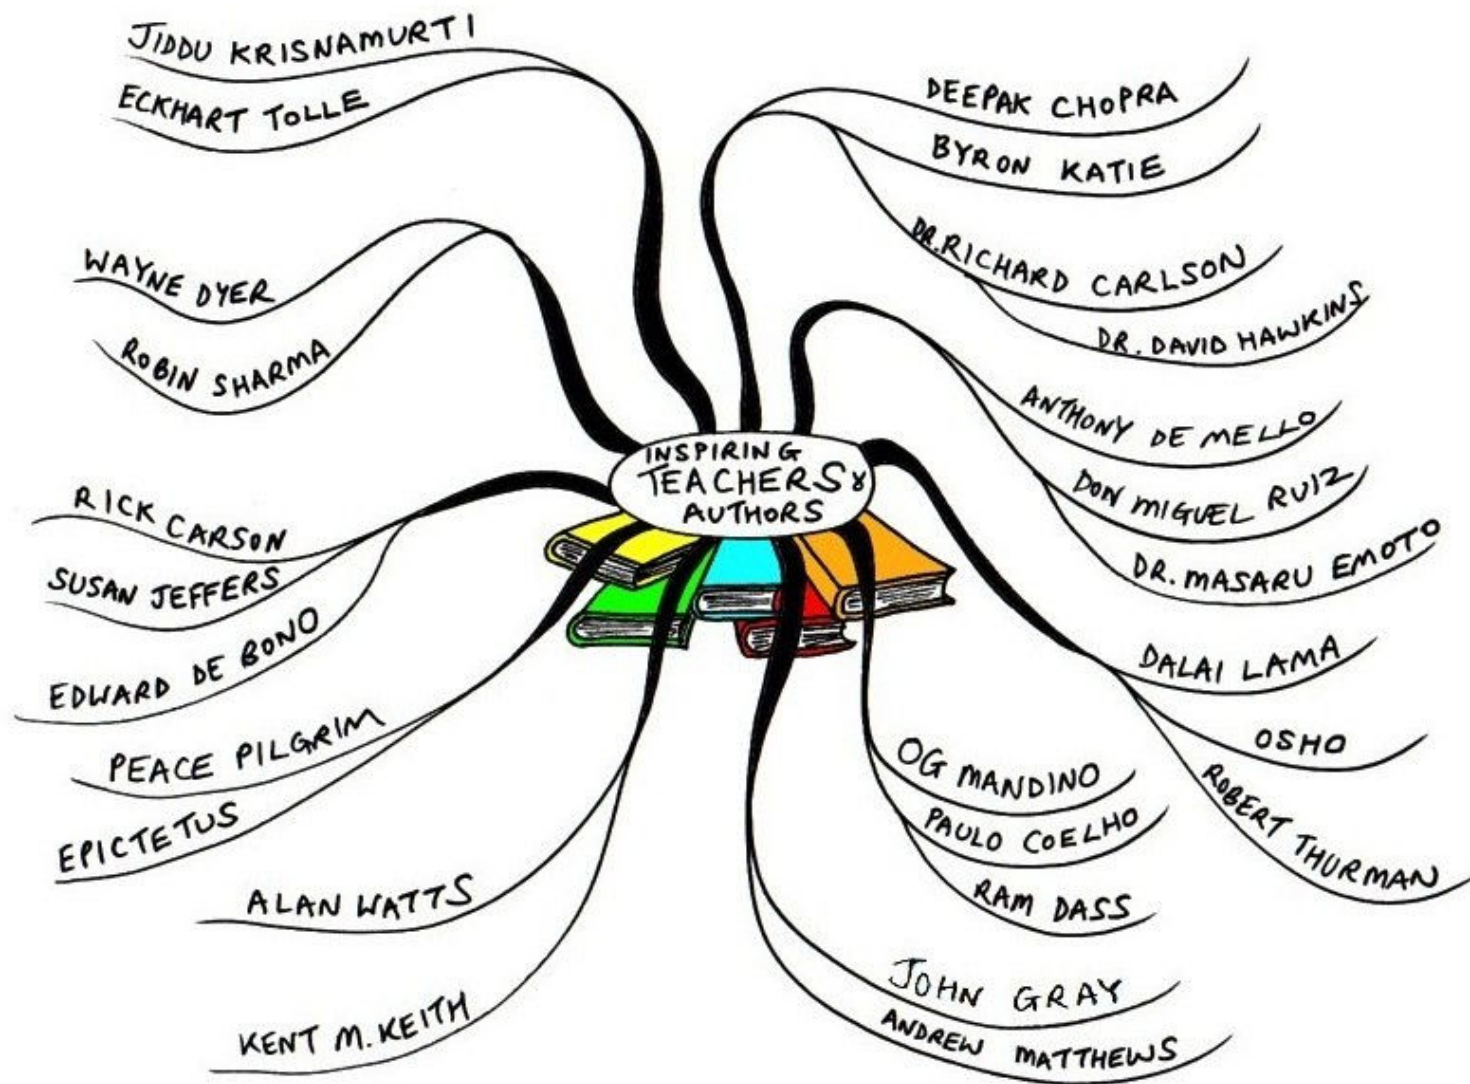 JIDDU KRISNAMURTI
ECKHART TOLLE
WAYNE DYER
ROBIN SHARMA
RICK CARSON
SUSAN JEFFERS
EDWARD DE BONO
PEACE PILGRIM
EPICTETUS
ALAN WATTS
KENT M. KEITH
INSPIRING
TEACHERS &
AUTHORS
DEEPAK CHOPRA
BYRON KATIE
DR. RICHARD CARLSON
DR. DAVID HAWKINS
ANTHONY DE MELLO
DON MIGUEL RUIZ
DR. MASARU EMOTO
DALAI LAMA
OSHO
ROBERT THURMAN
OG MANDINO
PAULO COELHO
RAM DASS
JOHN GRAY
ANDREW MATTHEWS